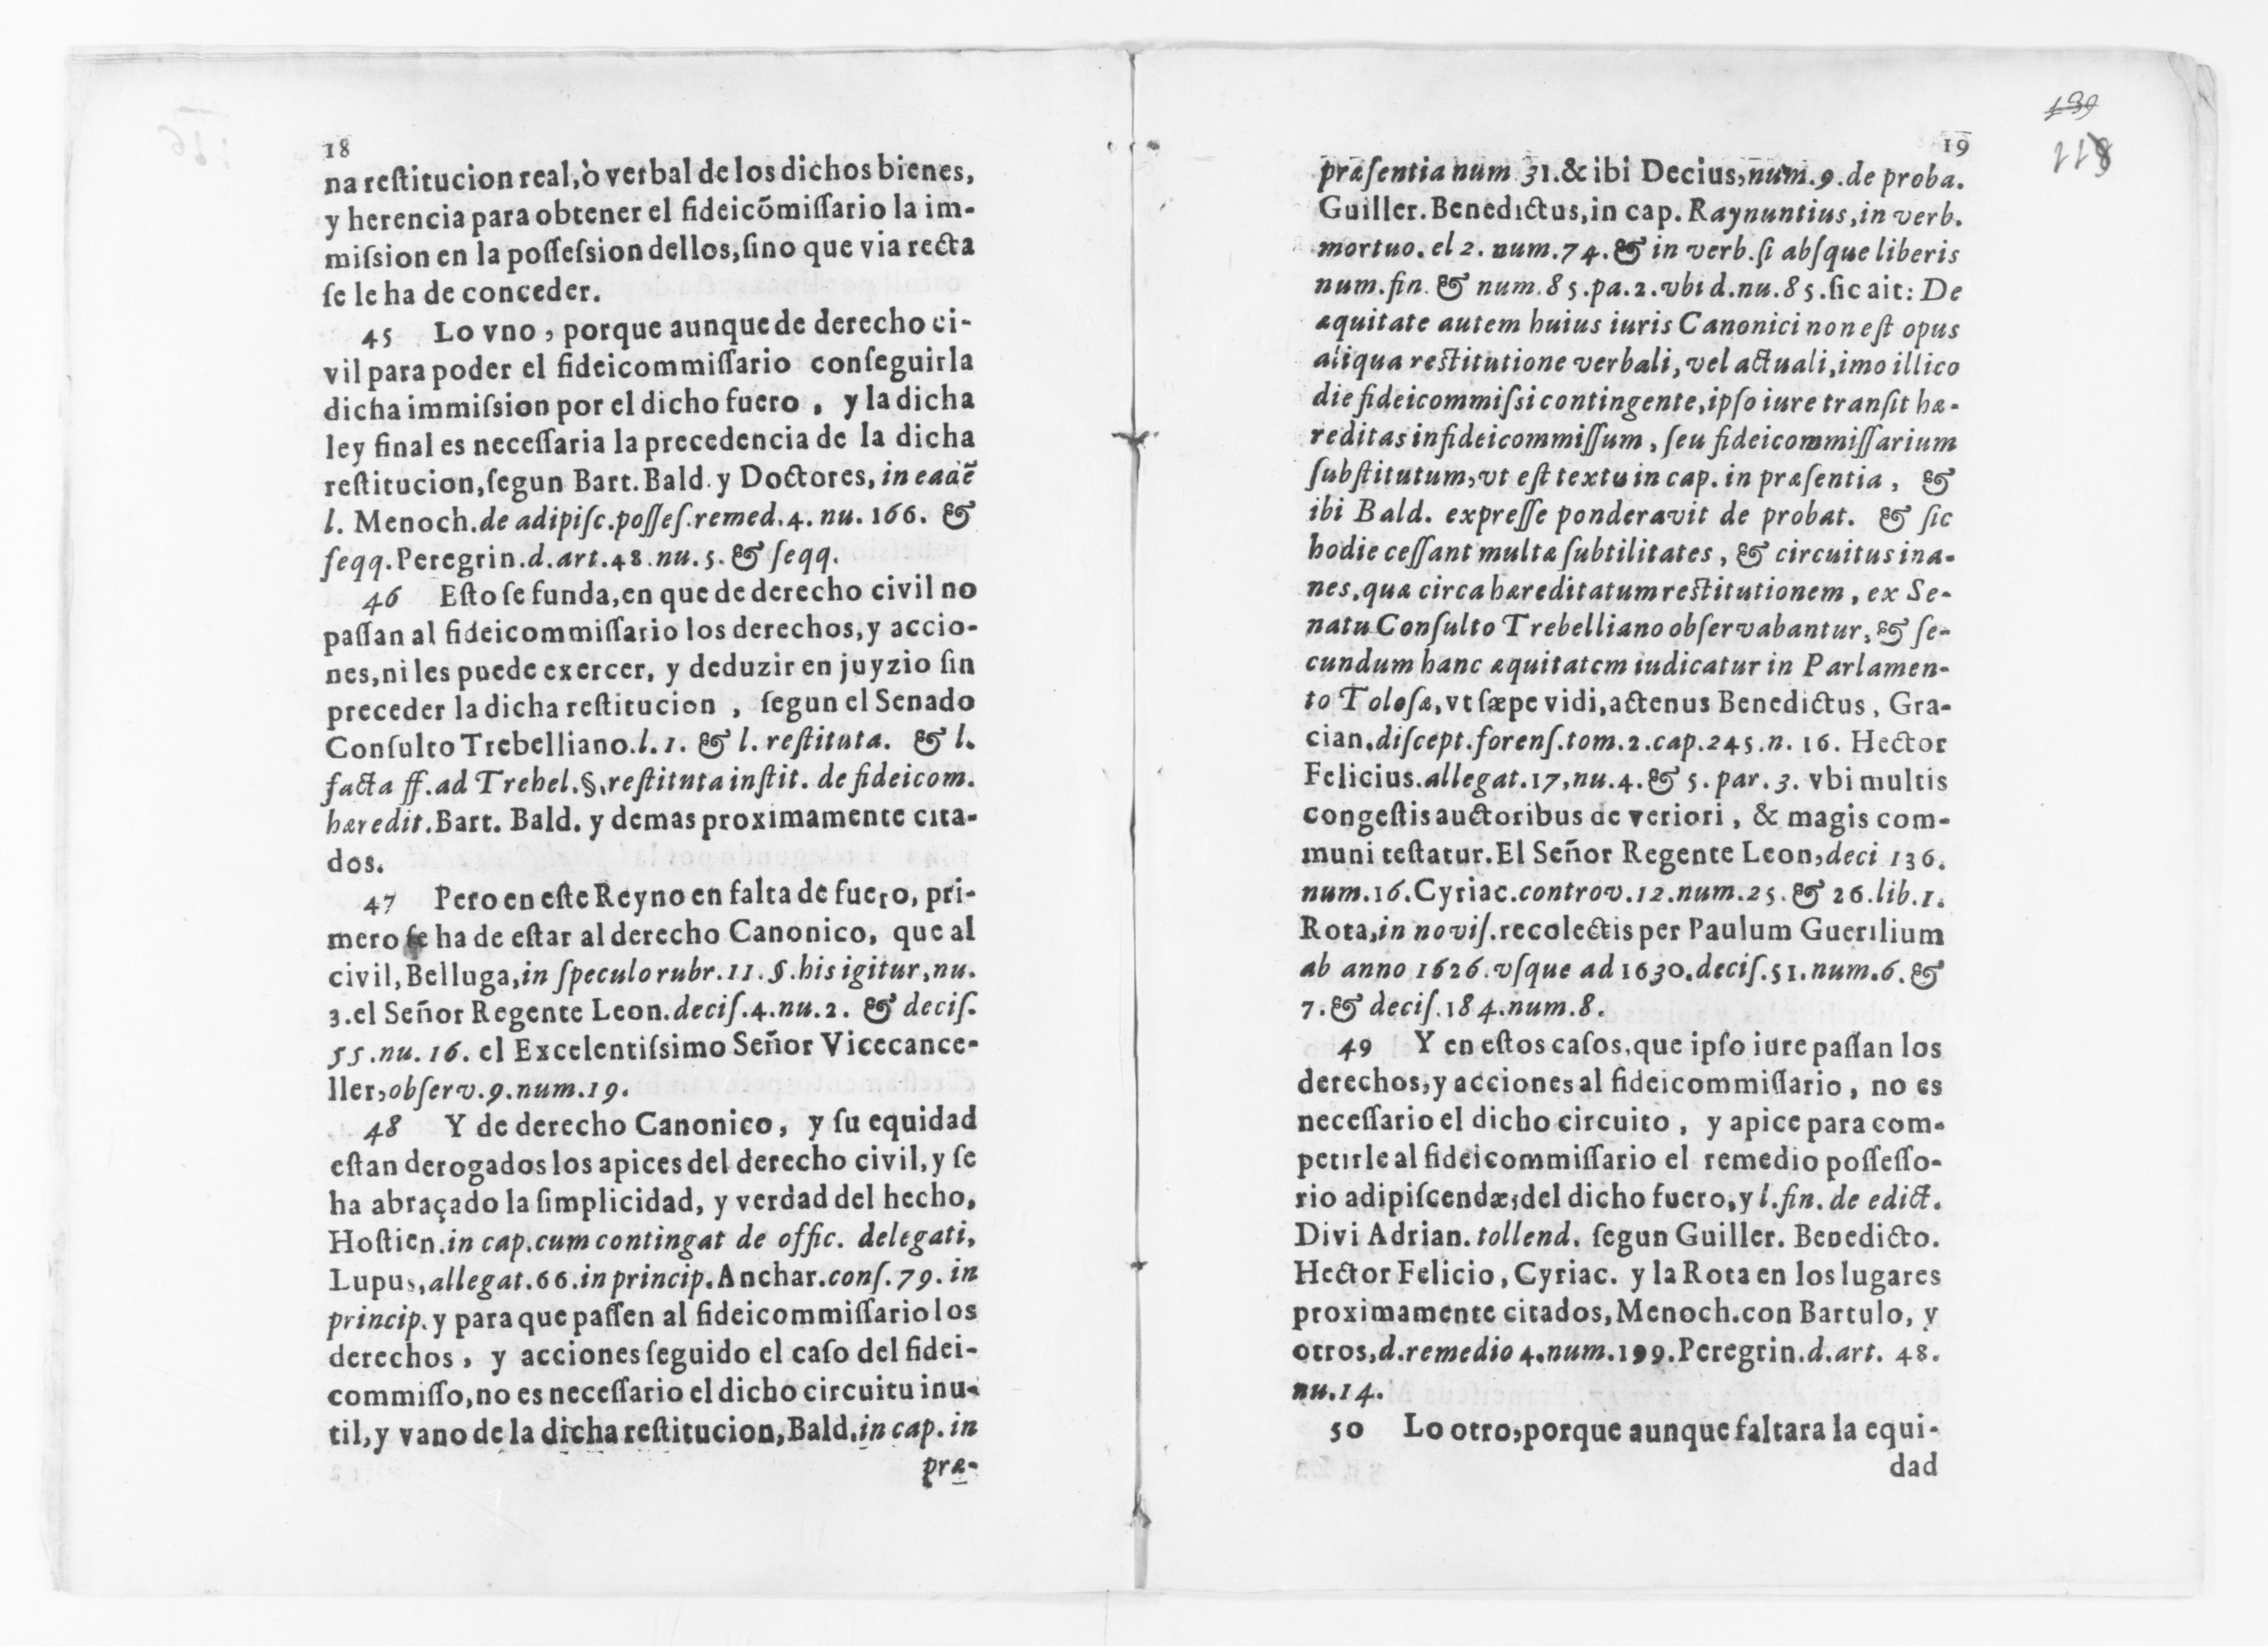 18
na restitucion real, ò verbal de los dichos bienes,
y herencia para obtener el fideicõmissario la im-
mission en la possession dellos, sino que via recta
se le ha de conceder.
45 Lo vno, porque aunque de derecho ci-
vil para poder el fideicommissario conseguirla
dicha immission por el dicho fuero, y la dicha
ley final es necessaria la precedencia de la dicha
restitucion, segun Bart. Bald. y Doctores, in eadẽ
l. Menoch. de adipisc. posses. remed. 4. nu. 166. &
seqq. Peregrin. d. art. 48. nu. 5. & seqq.
46 Esto se funda, en que de derecho civil no
passan al fideicommissario los derechos, y accio-
nes, ni les puede exercer, y deduzir en juyzio sin
preceder la dicha restitucion, segun el Senado
Consulto Trebelliano. l. 1. & l. restituta. & l.
facta ff. ad Trebel. §. restituta instit. de fideicom.
hæredit. Bart. Bald. y demas proximamente cita-
dos.
47 Pero en este Reyno en falta de fuero, pri-
mero se ha de estar al derecho Canonico, que al
civil, Belluga, in speculo rubr. 11. §. his igitur, nu.
3. el Señor Regente Leon. decis. 4. nu. 2. & decis.
55. nu. 16. el Excelentissimo Señor Vicecance-
ller, observ. 9. num. 19.
48 Y de derecho Canonico, y su equidad
estan derogados los apices del derecho civil, y se
ha abraçado la simplicidad, y verdad del hecho,
Hostien. in cap. cum contingat de offic. delegati,
Lupus, allegat. 66. in princip. Anchar. cons. 79. in
princip. y para que passen al fideicommissario los
derechos, y acciones seguido el caso del fidei-
commisso, no es necessario el dicho circuitu inu-
til, y vano de la dicha restitucion, Bald. in cap. in
præ-
139
118
19
præsentia num 31. & ibi Decius, num. 9. de proba.
Guiller. Benedictus, in cap. Raynuntius, in verb.
mortuo. el 2. num. 74. & in verb. si absque liberis
num. fin. & num. 85. pa. 2. vbi d. nu. 85. sic ait: De
æquitate autem huius iuris Canonici non est opus
aliqua restitutione verbali, vel actuali, imo illico
die fideicommissi contingente, ipso iure transit hæ-
reditas in fideicommissum, seu fideicommissarium
substitutum, vt est textu in cap. in præsentia, &
ibi Bald. expresse ponderavit de probat. & sic
hodie cessant multæ subtilitates, & circuitus ina-
nes, quæ circa hæreditatum restitutionem, ex Se-
natu Consulto Trebelliano observabantur, & se-
cundum hanc æquitatem iudicatur in Parlamen-
to Tolosæ, vt sæpe vidi, actenus Benedictus, Gra-
cian. discept. forens. tom. 2. cap. 245. n. 16. Hector
Felicius. allegat. 17, nu. 4. & 5. par. 3. vbi multis
congestis auctoribus de veriori, & magis com-
muni testatur. El Señor Regente Leon, deci 136.
num. 16. Cyriac. controv. 12. num. 25. & 26. lib. 1.
Rota, in novis. recolectis per Paulum Guerilium
ab anno 1626. vsque ad 1630. decis. 51. num. 6. &
7. & decis. 184. num. 8.
49 Y en estos casos, que ipso iure passan los
derechos, y acciones al fideicommissario, no es
necessario el dicho circuito, y apice para com-
petirle al fideicommissario el remedio possesso-
rio adipiscendæ; del dicho fuero, y l. fin. de edict.
Divi Adrian. tollend. segun Guiller. Benedicto.
Hector Felicio, Cyriac. y la Rota en los lugares
proximamente citados, Menoch. con Bartulo, y
otros, d. remedio 4. num. 199. Peregrin. d. art. 48.
nu. 14.
50 Lo otro, porque aunque faltara la equi-
dad